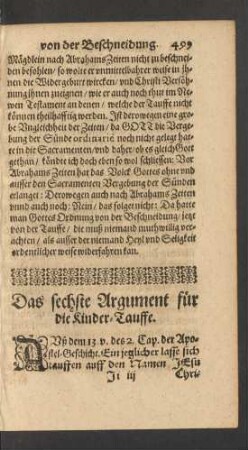 von der Beschneidung. 499
Mägdlein nach Abrahams Zeiten nicht zu beschnei-
den befohlen / so wolte er vnmittelbahrer weise in jh-
nen die Widergeburt wircken / vnd Christi Versöh-
nung jhnen zueignen / wie er auch noch thut im Ne-
wen Testament an denen / welche der Tauffe nicht
können theilhafftig werden. Ist derowegen eine gro-
be Vngleichheit der Zeiten / da GOTT die Verge-
bung der Sünde ordinariè noch nicht gelegt hat-
te in die Sacramenten / vnd daher / ob es gleich Gott
gethan / köndte ich doch eben so wol schliessen: Vor
Abrahams Zeiten hat das Volck Gottes ohne vnd
ausser den Sacramenten Vergebung der Sünden
erlanget: Derowegen auch nach Abrahams Zeiten
vnd auch noch: Nein / das folget nicht: Da hatte
man Gottes Ordnung von der Beschneidung / jetzt
von der Tauffe / die muß niemand muthwillig ver-
achten / als ausser der niemand Heyl vnd Seligkeit
ordentlicher weise widerfahren kan.
Das sechste Argument für
die Kinder-Tauffe.
AVß dem 13 v. des 2. Cap. der Apo-
stel-Geschicht. Ein jeglicher lasse sich
tauffen auff den Namen JEsu
Ii iij
Chri-